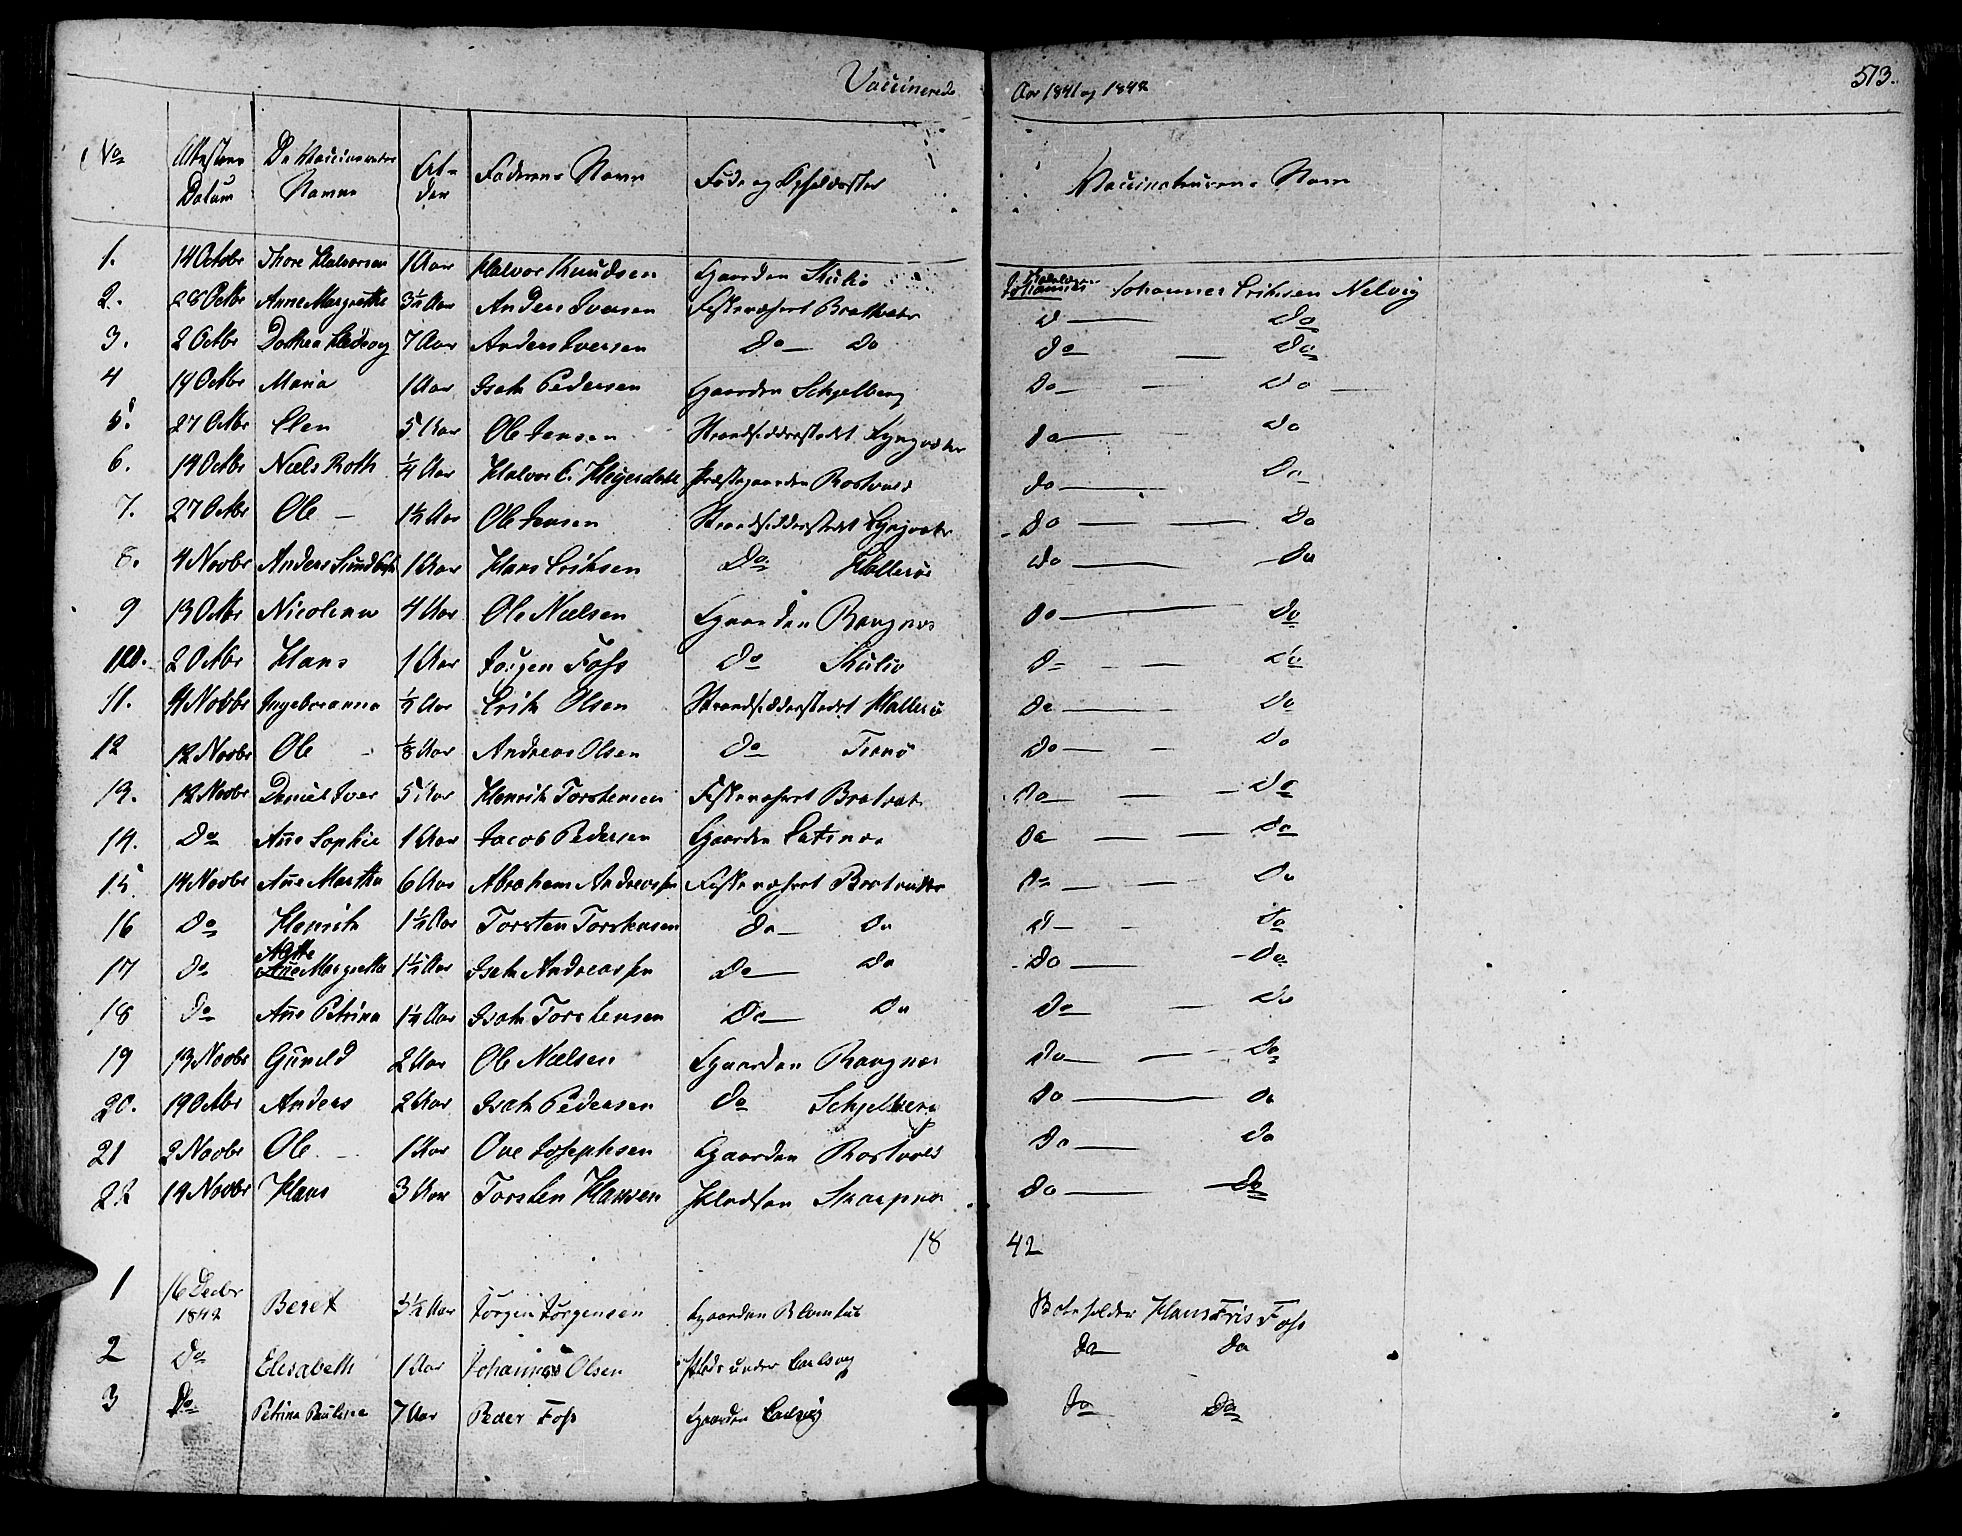 Vaccinerede Aar 1841 og 1842 513.
No Attestens Datum De Vaccineredes Navne Al- der Faderens Navn Føde og Opholdssted Vaccinateurens Navn
1. 14 Octobr Thore Halvorsen 1 Aar Halvor Knudsen Gaarden Johannes Eriksen Nelvig
2. 28 Octbr Anne Margrethe 3½ Aar Anders Iversen Fiskeværet Brattvær do do
3. 2 Octbr Dorthea Hedevig 7 Aar Anders Iversen Do Do do do
4 19 Octbr Maria 1 Aar Isach Pedersen Gaarden Schjelberg do do
5. 27 Octbr Elen 5 Aar Ole Jensen Strandsidderstedet Lyngvær do do
6. 19 Octbr Niels Roth ¼ Aar Halvor C. Præstegaarden Rostvold do do
7. 27 Octbr Ole 1½ Aar Ole Jensen Strandsidderstedet Lyngvær do do
8. 4 Novbr Anders 1 Aar Hans Eriksen Do Hallerøe do do
9 13 Octbr Nicoleane 4 Aar Ole Nielsen Gaarden Rangnæs do do
10. 2 Octbr Hans 1 Aar Jørgen Foss Do do do
11. 4 Novbr Ingeboranna ½ Aar Erik Olsen Strandsidderstedet Hallerø do do
12 12 Novbr Ole ⅛ Aar Andreas Olsen do do do
13. 12 Novbr Daniel Iver 5 Aar Henrik Torstensen Fiskeværet Bratvær do do
14. Do Añe Sophie 1 Aar Jacob Pedersen Gaarden do do
15. 14 Novbr Añe Martha 6 Aar Abraham Andreassen Fiskeværet do do
16 Do Henrik 1½ Aar Torsten Torstensen do do do do
17 do Mette Añe Margretha 1½ Aar Isach Andreassen Do do Do Do
18 Do Añe Petrina 1¼ Aar Isach Torstensen Do do do do
19 13 Novbr Guneld 2 Aar Ole Nielsen Gaarden Rangnæs do do
20. 19 Octbr Anders 2 Aar Isach Pedersen do Schjelberg do do
21 2 Novbr Ole 1 Aar Ove Josephsen Gaarden Rostvold do do
22 14 Novbr Hans 3 Aar Torsten Hansen Pladsen Skarpnæs do do
18 42
1 16 Decbr 1842 Beret 3½ Aar Jørgen Jørgensen Gaarden Hans Friis Foss
2 Do Elisabeth 1 Aar Johannes Olsen Plads under Carlsvog do do
3 Do Petrina Pauline 7 Aar Peder Foss Gaarden do do